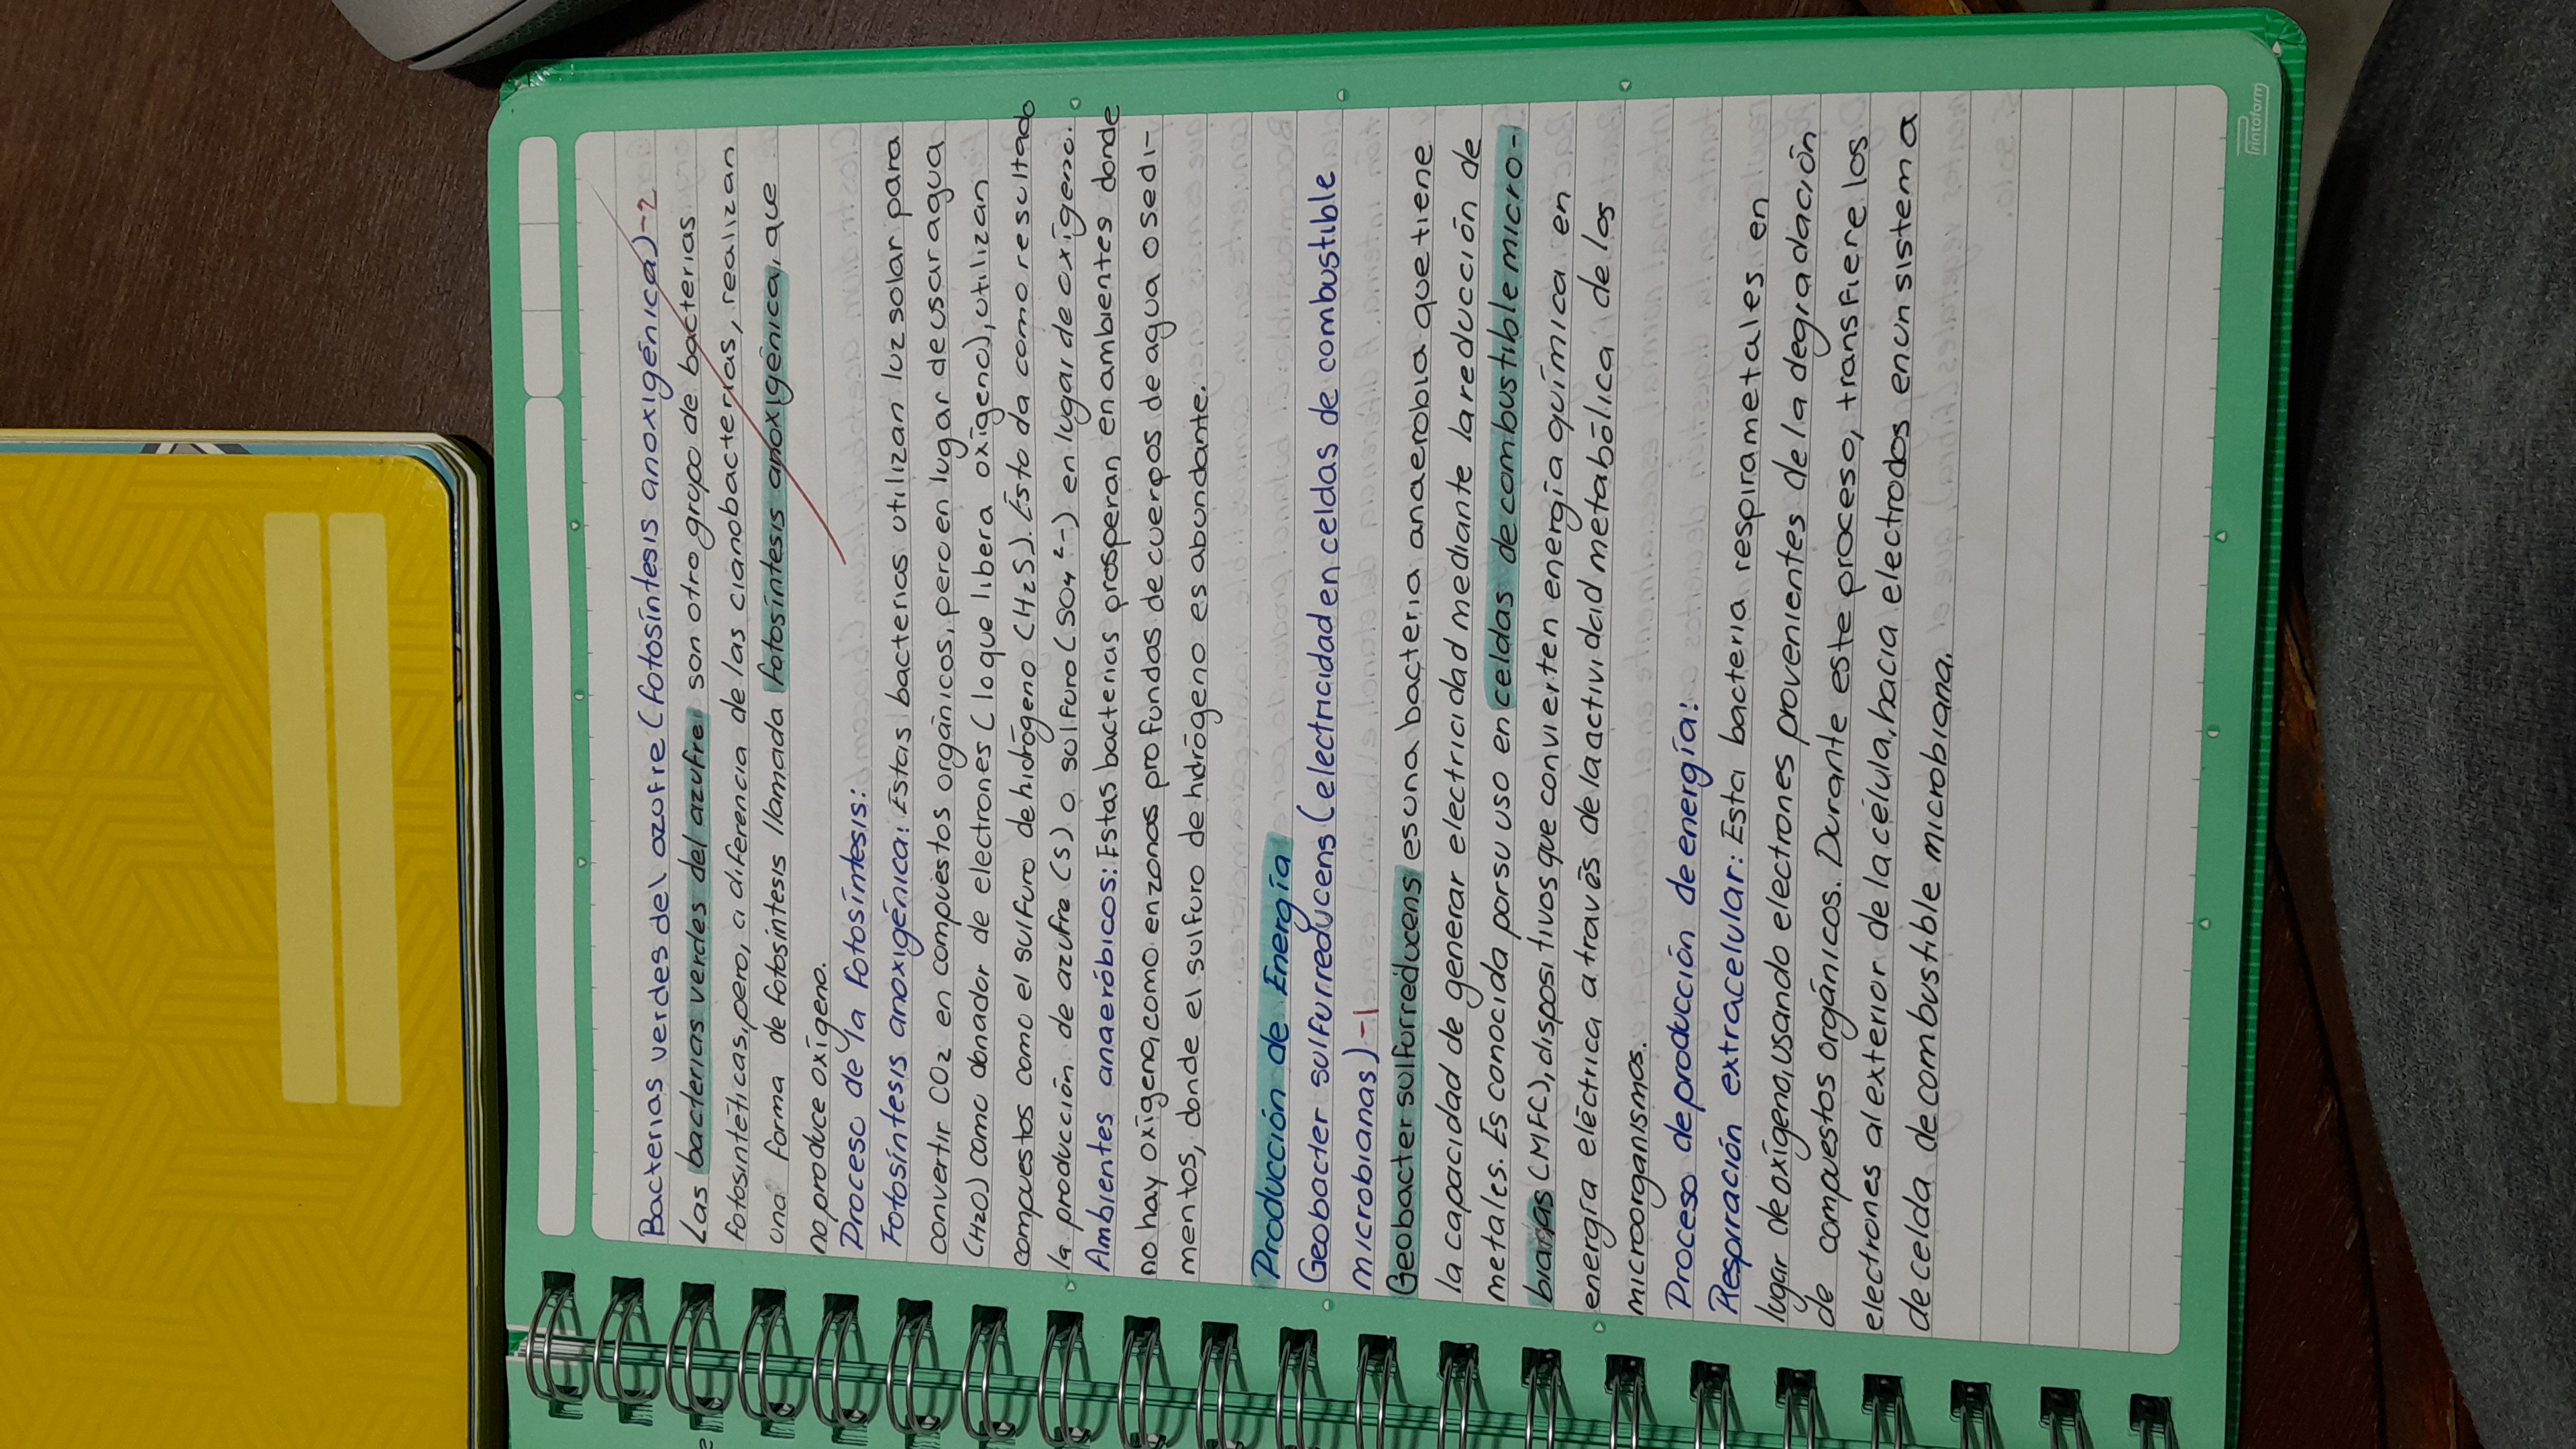 Bacterias verdes del azufre (fotosíntesis anoxigénica) -2
Las bacterias verdes del azufre son otro grupo de bacterias
fotosintéticas, pero, a diferencia de las cianobacterias, realizan
una forma de fotosíntesis llamada fotosíntesis anoxigénica, que
no produce oxígeno.
Proceso de la fotosíntesis:
Fotosíntesis anoxigénica: Estas bacterias utilizan luz solar para
convertir CO2 en compuestos orgánicos, pero en lugar de usar agua
(H2O) como donador de electrones (lo que libera oxígeno), utilizan
compuestos como el sulfuro de hidrógeno (H2S). Esto da como resultado
la producción de azufre (S) o sulfuro (SO4 2-) en lugar de oxígeno.
Ambientes anaeróbicos: Estas bacterias prosperan en ambientes donde
no hay oxígeno, como en zonas profundas de cuerpos de agua o sedi-
mentos, donde el sulfuro de hidrógeno es abundante.
Producción de Energía
Geobacter sulfurreducens (electricidad en celdas de combustible
microbianas) -1
Geobacter sulfurreducens es una bacteria anaerobia que tiene
la capacidad de generar electricidad mediante la reducción de
metales. Es conocida por su uso en celdas de combustible micro-
bianas (MFC), dispositivos que convierten energía química en
energía eléctrica a través de la actividad metabólica de los
microorganismos.
Proceso de producción de energía:
Respiración extracelular: Esta bacteria respira metales en
lugar de oxígeno, usando electrones provenientes de la degradación
de compuestos orgánicos. Durante este proceso, transfiere los
electrones al exterior de la célula, hacia electrodos en un sistema
de celda de combustible microbiana.
Printaform